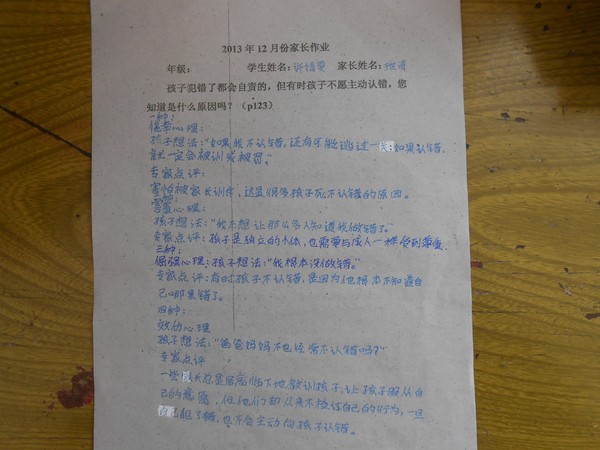 2013 年 12 月份家长作业
年级： 学生姓名： 家长姓名：
孩子犯错了都会自责的，但有时孩子不愿主动认错，您
知道是什么原因吗？（p123）
一种：
侥幸心理：
孩子想法："如果我不认错，还有可能逃过一线：如果认错，
就一定会被训责被罚。"
专家点评：
害怕被家长训斥，这是很多孩子死不认错的原因。
害羞心理：
孩子想法："我不想让那么多人知道我做错了。"
专家点评：孩子是独立的个体，也需要与成人一样受到尊重。
三种：
倔强心理：孩子想法："我根本没做错。"
专家点评：有时孩子不认错，是因为他根本不知道自
己哪里错了。
四种：
效仿心理
孩子想法："爸爸妈妈不也经常不认错吗？"
专家点评
一些家长总是居高临下地教训孩子，让孩子服从自
己的意愿，但他们却从来不检讨自己的行为，一旦
自己犯了错，也不会主动向孩子认错。